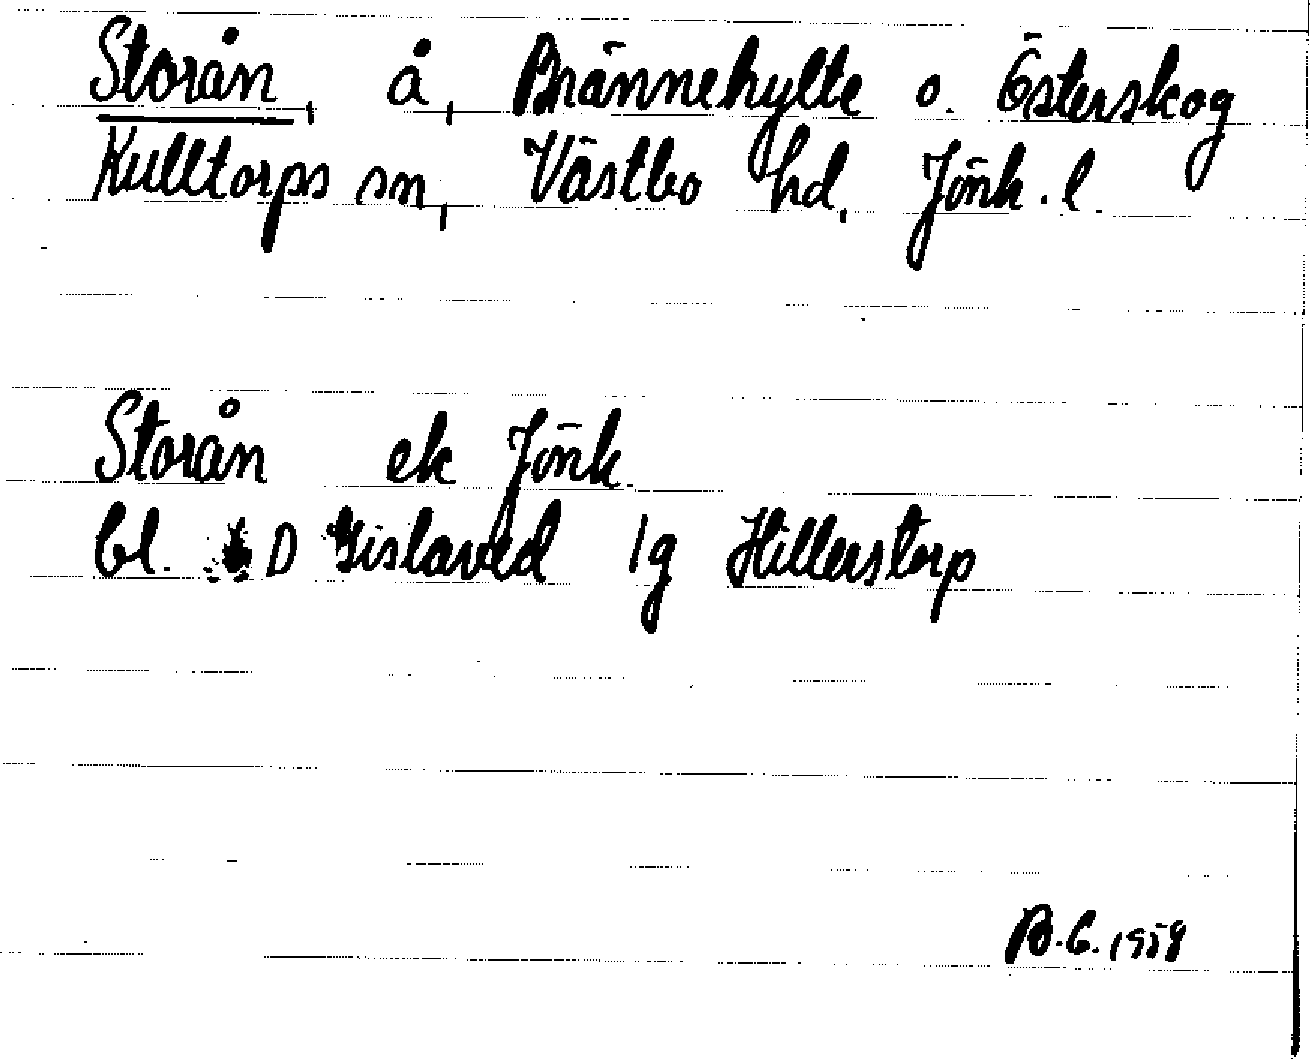 Storån, å, Brännehylte o. Österskog
Kulltorps sn, Västbo hd, Jönk. l.
Storån ek Jönk.
bl. 5 D Gislaved 1g Hillerstorp
B.E. 1958